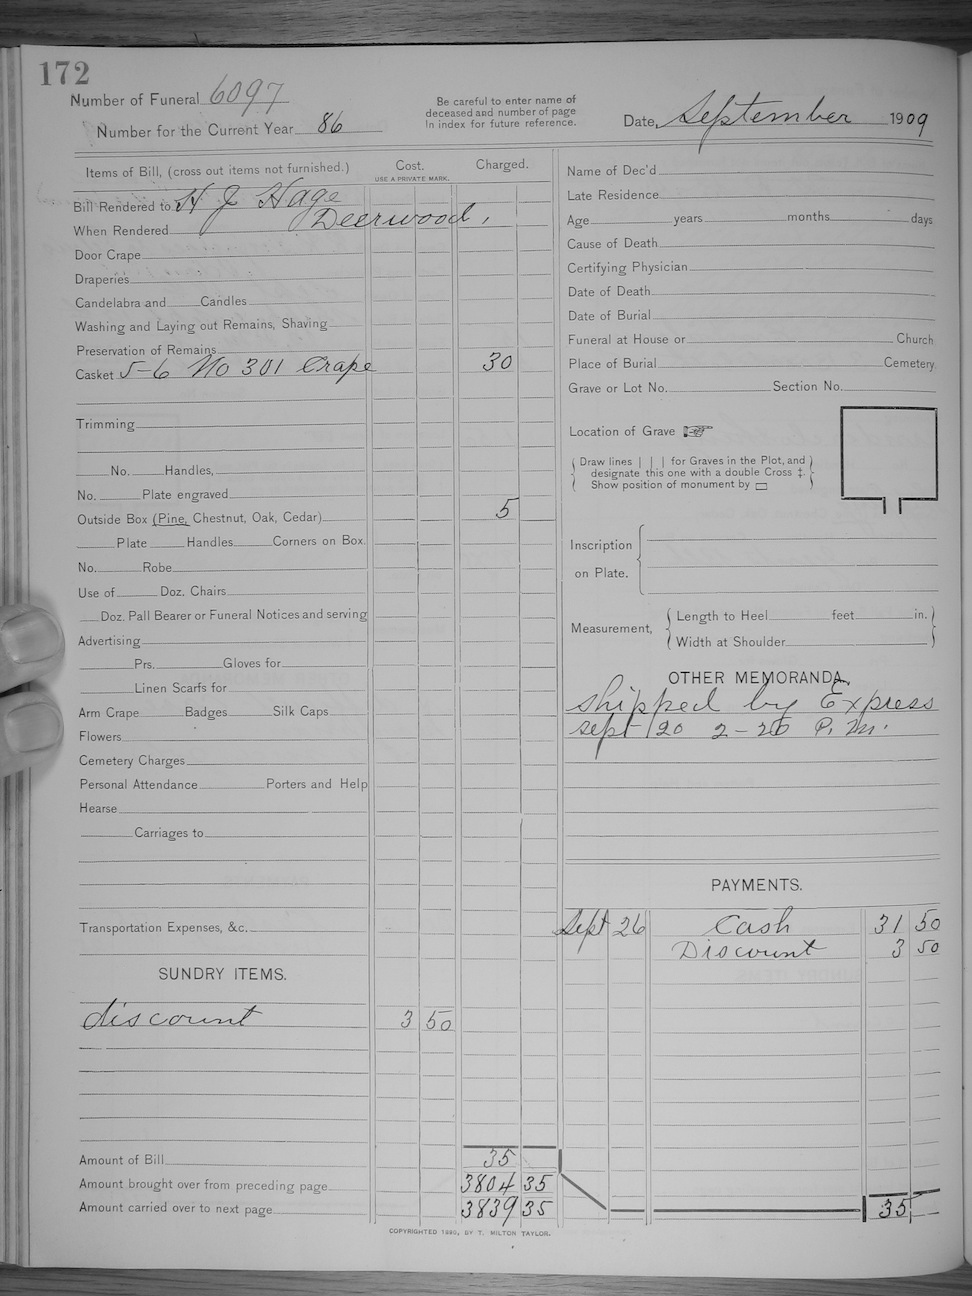 172
Number of Funeral 6097
Number for the Current Year 86
Be careful to enter name of
deceased and number of page
in index for future reference.
Date, September 1909
Items of Bill, (cross out items not furnished.)
Cost.
USE A PRIVATE MARK.
Charged.
Bill Rendered to H J Hage
When Rendered Deerwood,
Door Crape
Draperies
Candelabra and Candles
Washing and Laying out Remains, Shaving
Preservation of Remains
Casket 5-6 No 301 Crape 30
Trimming
No. Handles,
No. Plate engraved
Outside Box (Pine, Chestnut, Oak, Cedar) 5
Plate Handles Corners on Box.
No. Robe
Use of Doz. Chairs
Doz. Pall Bearer or Funeral Notices and serving
Advertising
Prs. Gloves for
Linen Scarfs for
Arm Crape Badges Silk Caps
Flowers
Cemetery Charges
Personal Attendance Porters and Help
Hearse
Carriages to
Transportation Expenses, &c.
SUNDRY ITEMS.
discount 3 50
Amount of Bill 35
Amount brought over from preceding page 3804 35
Amount carried over to next page 3839 35
Name of Dec'd
Late Residence
Age years months days
Cause of Death
Certifying Physician
Date of Death
Date of Burial
Funeral at House or Church
Place of Burial Cemetery
Grave or Lot No. Section No.
Location of Grave
Draw lines | | | for Graves in the Plot, and
designate this one with a double Cross ‡.
Show position of monument by ▭
Inscription
on Plate.
Measurement,
Length to Heel feet in.
Width at Shoulder
OTHER MEMORANDA.
Shipped by Express
sept 20 2-25 P.m.
PAYMENTS.
Sept 26 Cash 31 50
Discount 3 50
35
COPYRIGHTED 1880, BY T. MILTON TAYLOR.